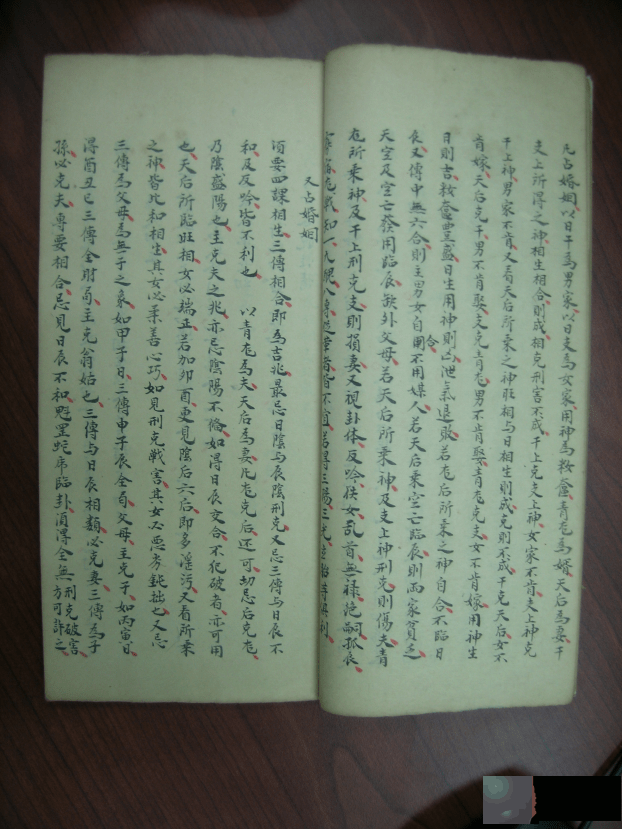 凡占婚姻以日干為男家以日支為女家用神為妝奩青龙為婿天后為妻干
支上所得之神相生相合則成相克刑害不成干上克支上神女家不肯支上神克
干上神男家不肯又看天后所乘之神旺相与日相生則成克則不成干克天后女不
肯嫁天后克干男不肯娶支克青龙男不肯娶青龙克支女不肯嫁用神生
日則吉妝奩豊盛日生用神則凶泄氣退敗若龙后所乘之神自合不临日
辰又傳中無六合則主男女自合不用媒人若天后乘空亡临辰則両家貧乏
天空及空亡發用临辰缺外父母若天后所乘神及支上神刑克則傷夫青
龙所乘神及干上刑克支則損妻又視卦体反吟佚女乱首無禄绝嗣孤辰
又占婚姻
須要四課相生三傳相合即為吉兆最忌日陰与辰陰刑克又忌三傳与日辰不
和及反吟皆不利也 以青龙為夫天后為妻凡龙克后还可切忌后克龙
乃陰盛陽也主克夫之兆亦忌陰陽不俻如得日辰交合不犯破者亦可用
也天后所临旺相女必端正若加卯酉更見陰后六后即多淫污又看所乘
之神皆比和相生其女必柔善心巧如見刑克戦害其女必悪劣鈍拙也又忌
三傳為父母為無子之象如甲子日三傳申子辰全局父母主克子如丙寅日
得酉丑巳三傳全財局主克翁姑也三傳与日辰相類必克妻三傳為子
孫必克夫専要相合忌見日辰不和魁罡蛇虎临卦須得全無刑克破害
方可許之